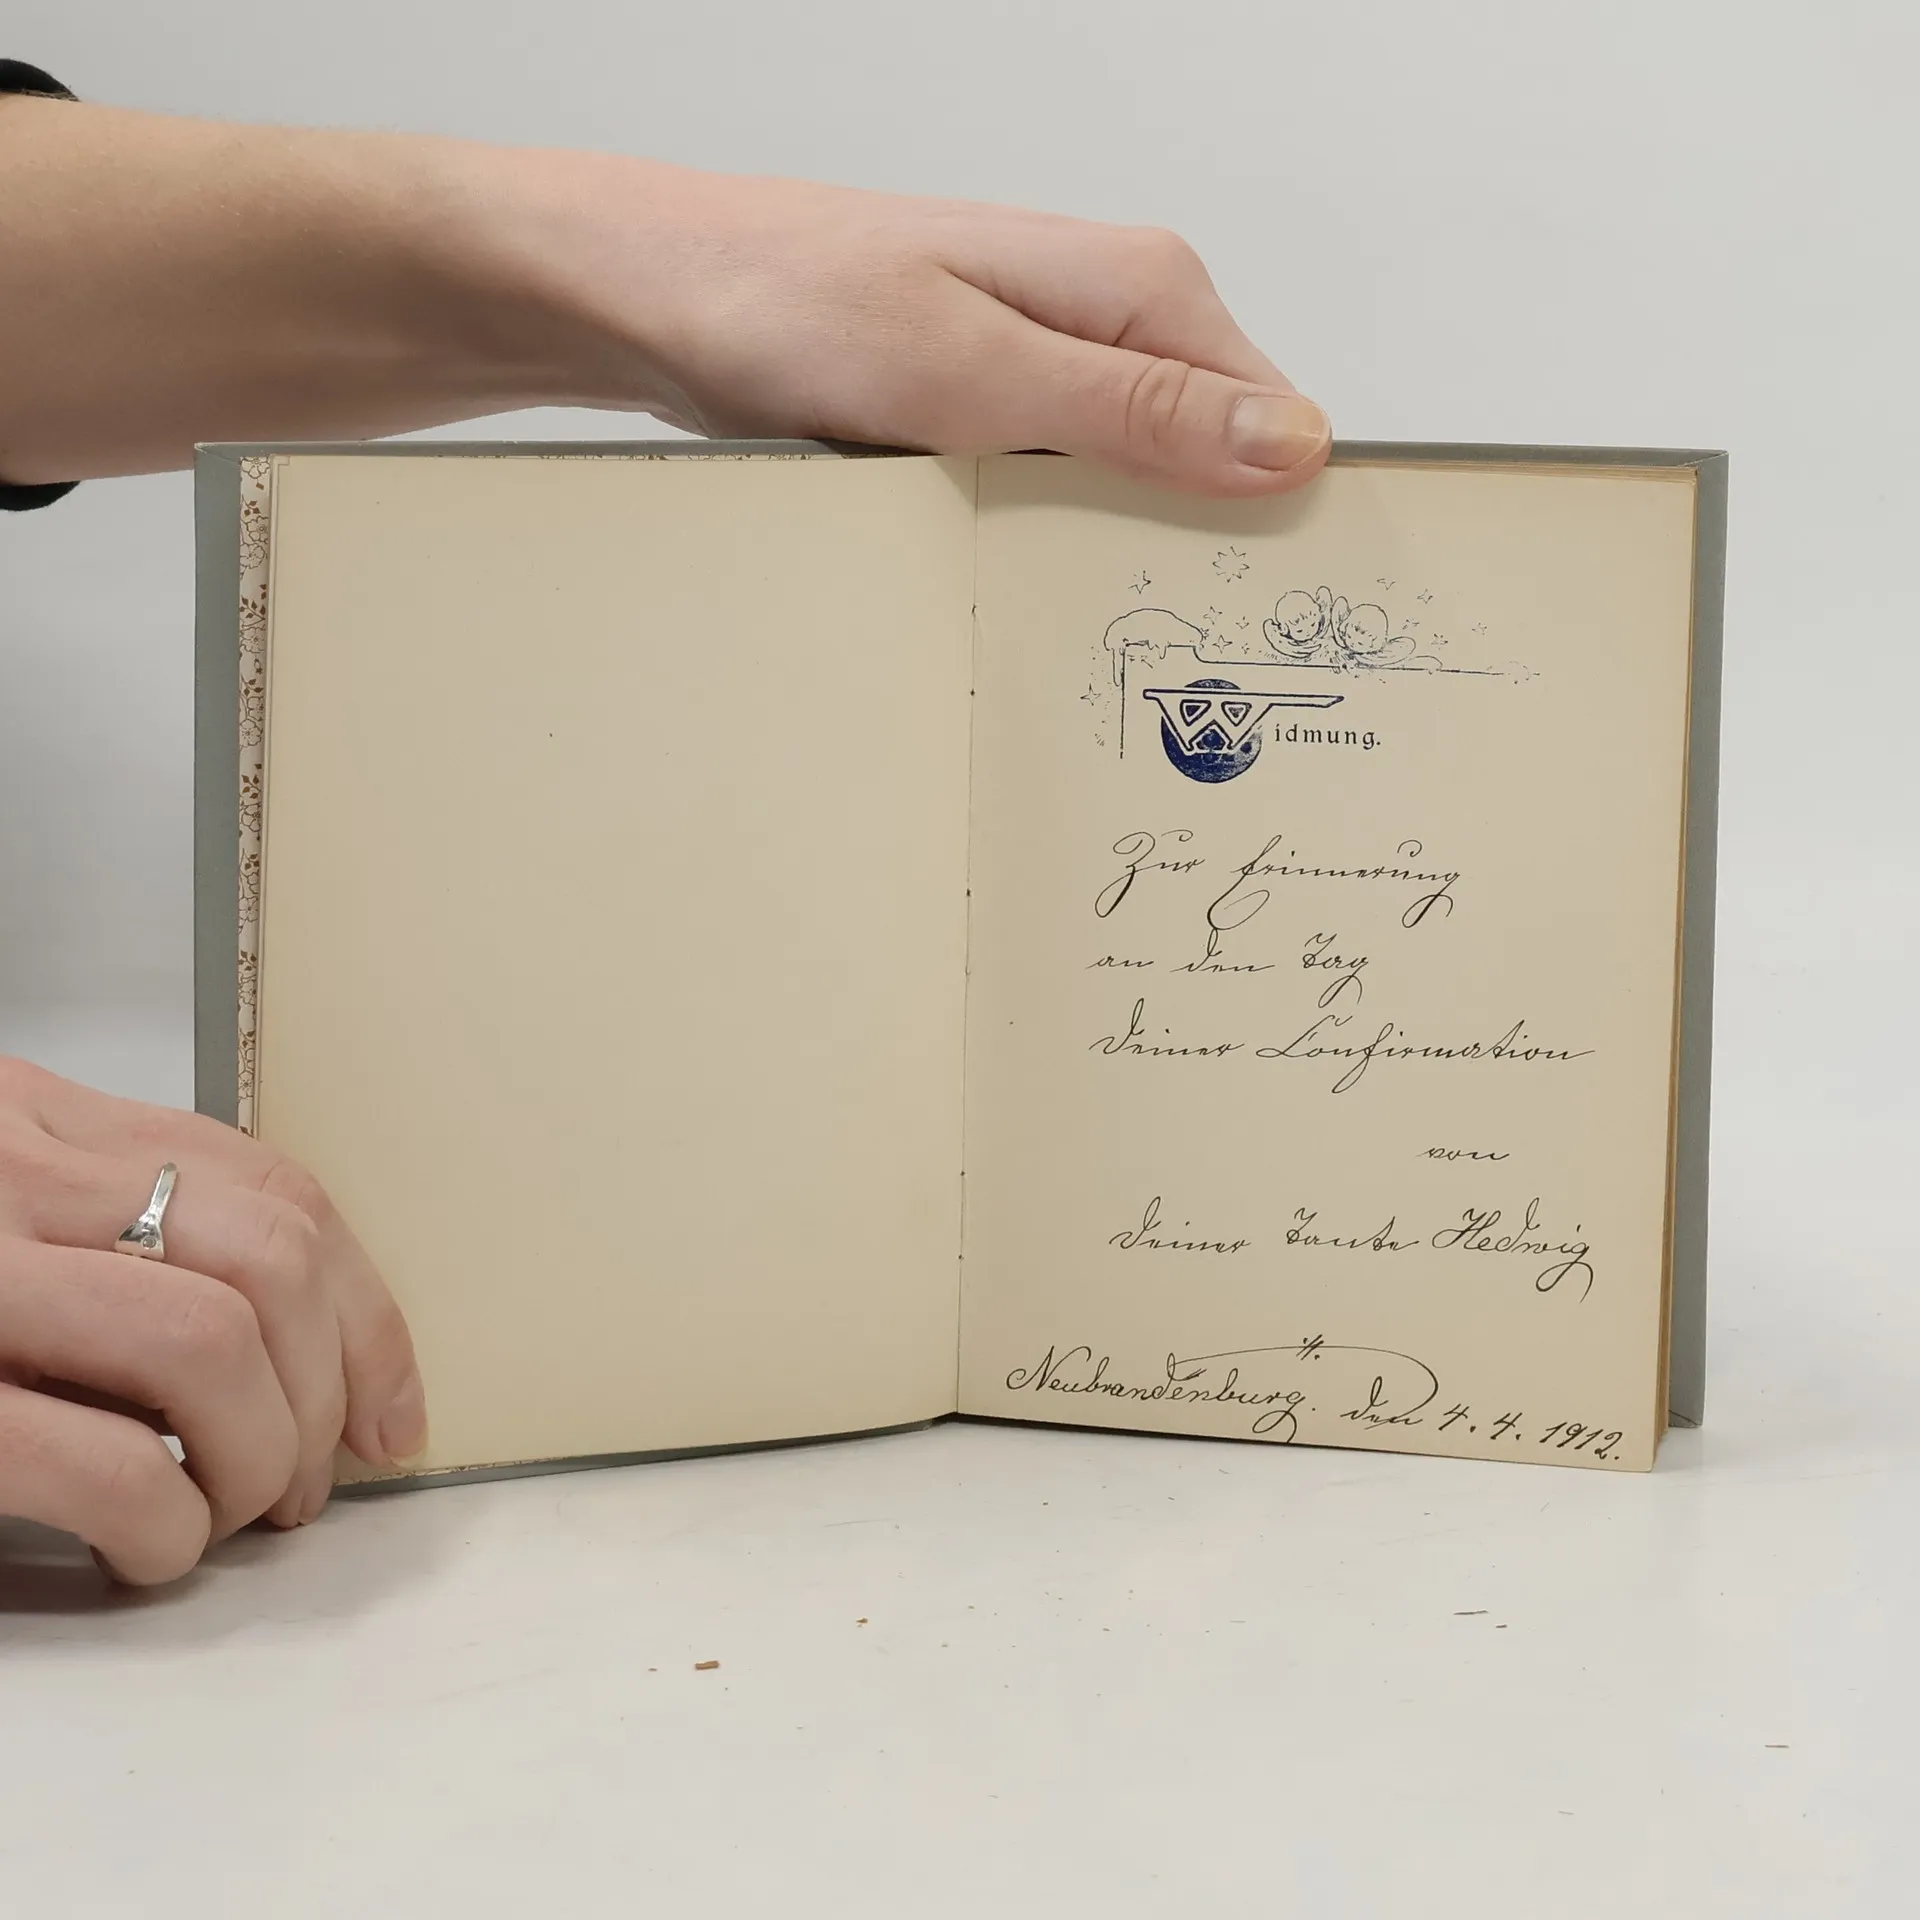 Widmung.
Zur Erinnerung
an den Tag
Deiner Confirmation
von
Deiner Tante Hedwig
Neubrandenburg. den 4. 4. 1912.